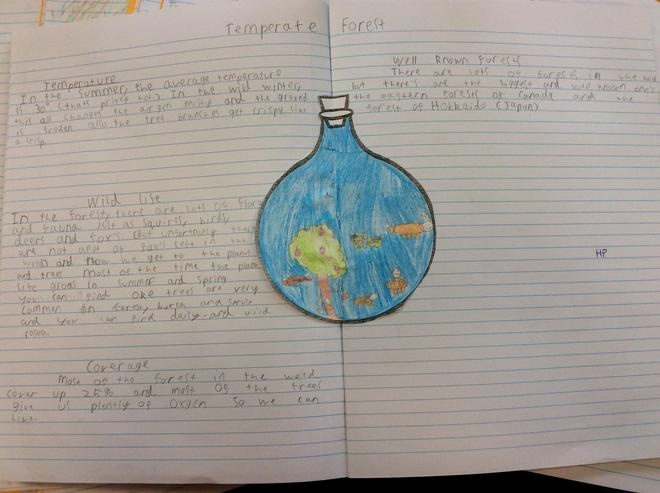 Temperate Forest
Temperature
In the summer, the average temperature
is 30° (thats pritey hot.) In the wild winter,
this all changes the air gets misty and the ground
is frozen also the tree branches get crispy like
a crisp
Wild life
In the forest, there are lots of flora
and fauna such as squirls, birds,
deers and fox's (But unfortnutly there
are not alot of fox's left in the
world) and now we get to the plants
and trees most of the time the plant
life grows in summer and spring
You can find oke trees are very
common in
and you can find daisy and wild
roses.
Coverage
Most of the forest in the wold
cover up 25% and most of the trees
give us plently of oxgen so we can
live.
Well Known forests
There are lots of forests in the
but there's are the biggest and well known one's
the eastern forest of Canada and the
forest of Hokkaido (Japan)
HP